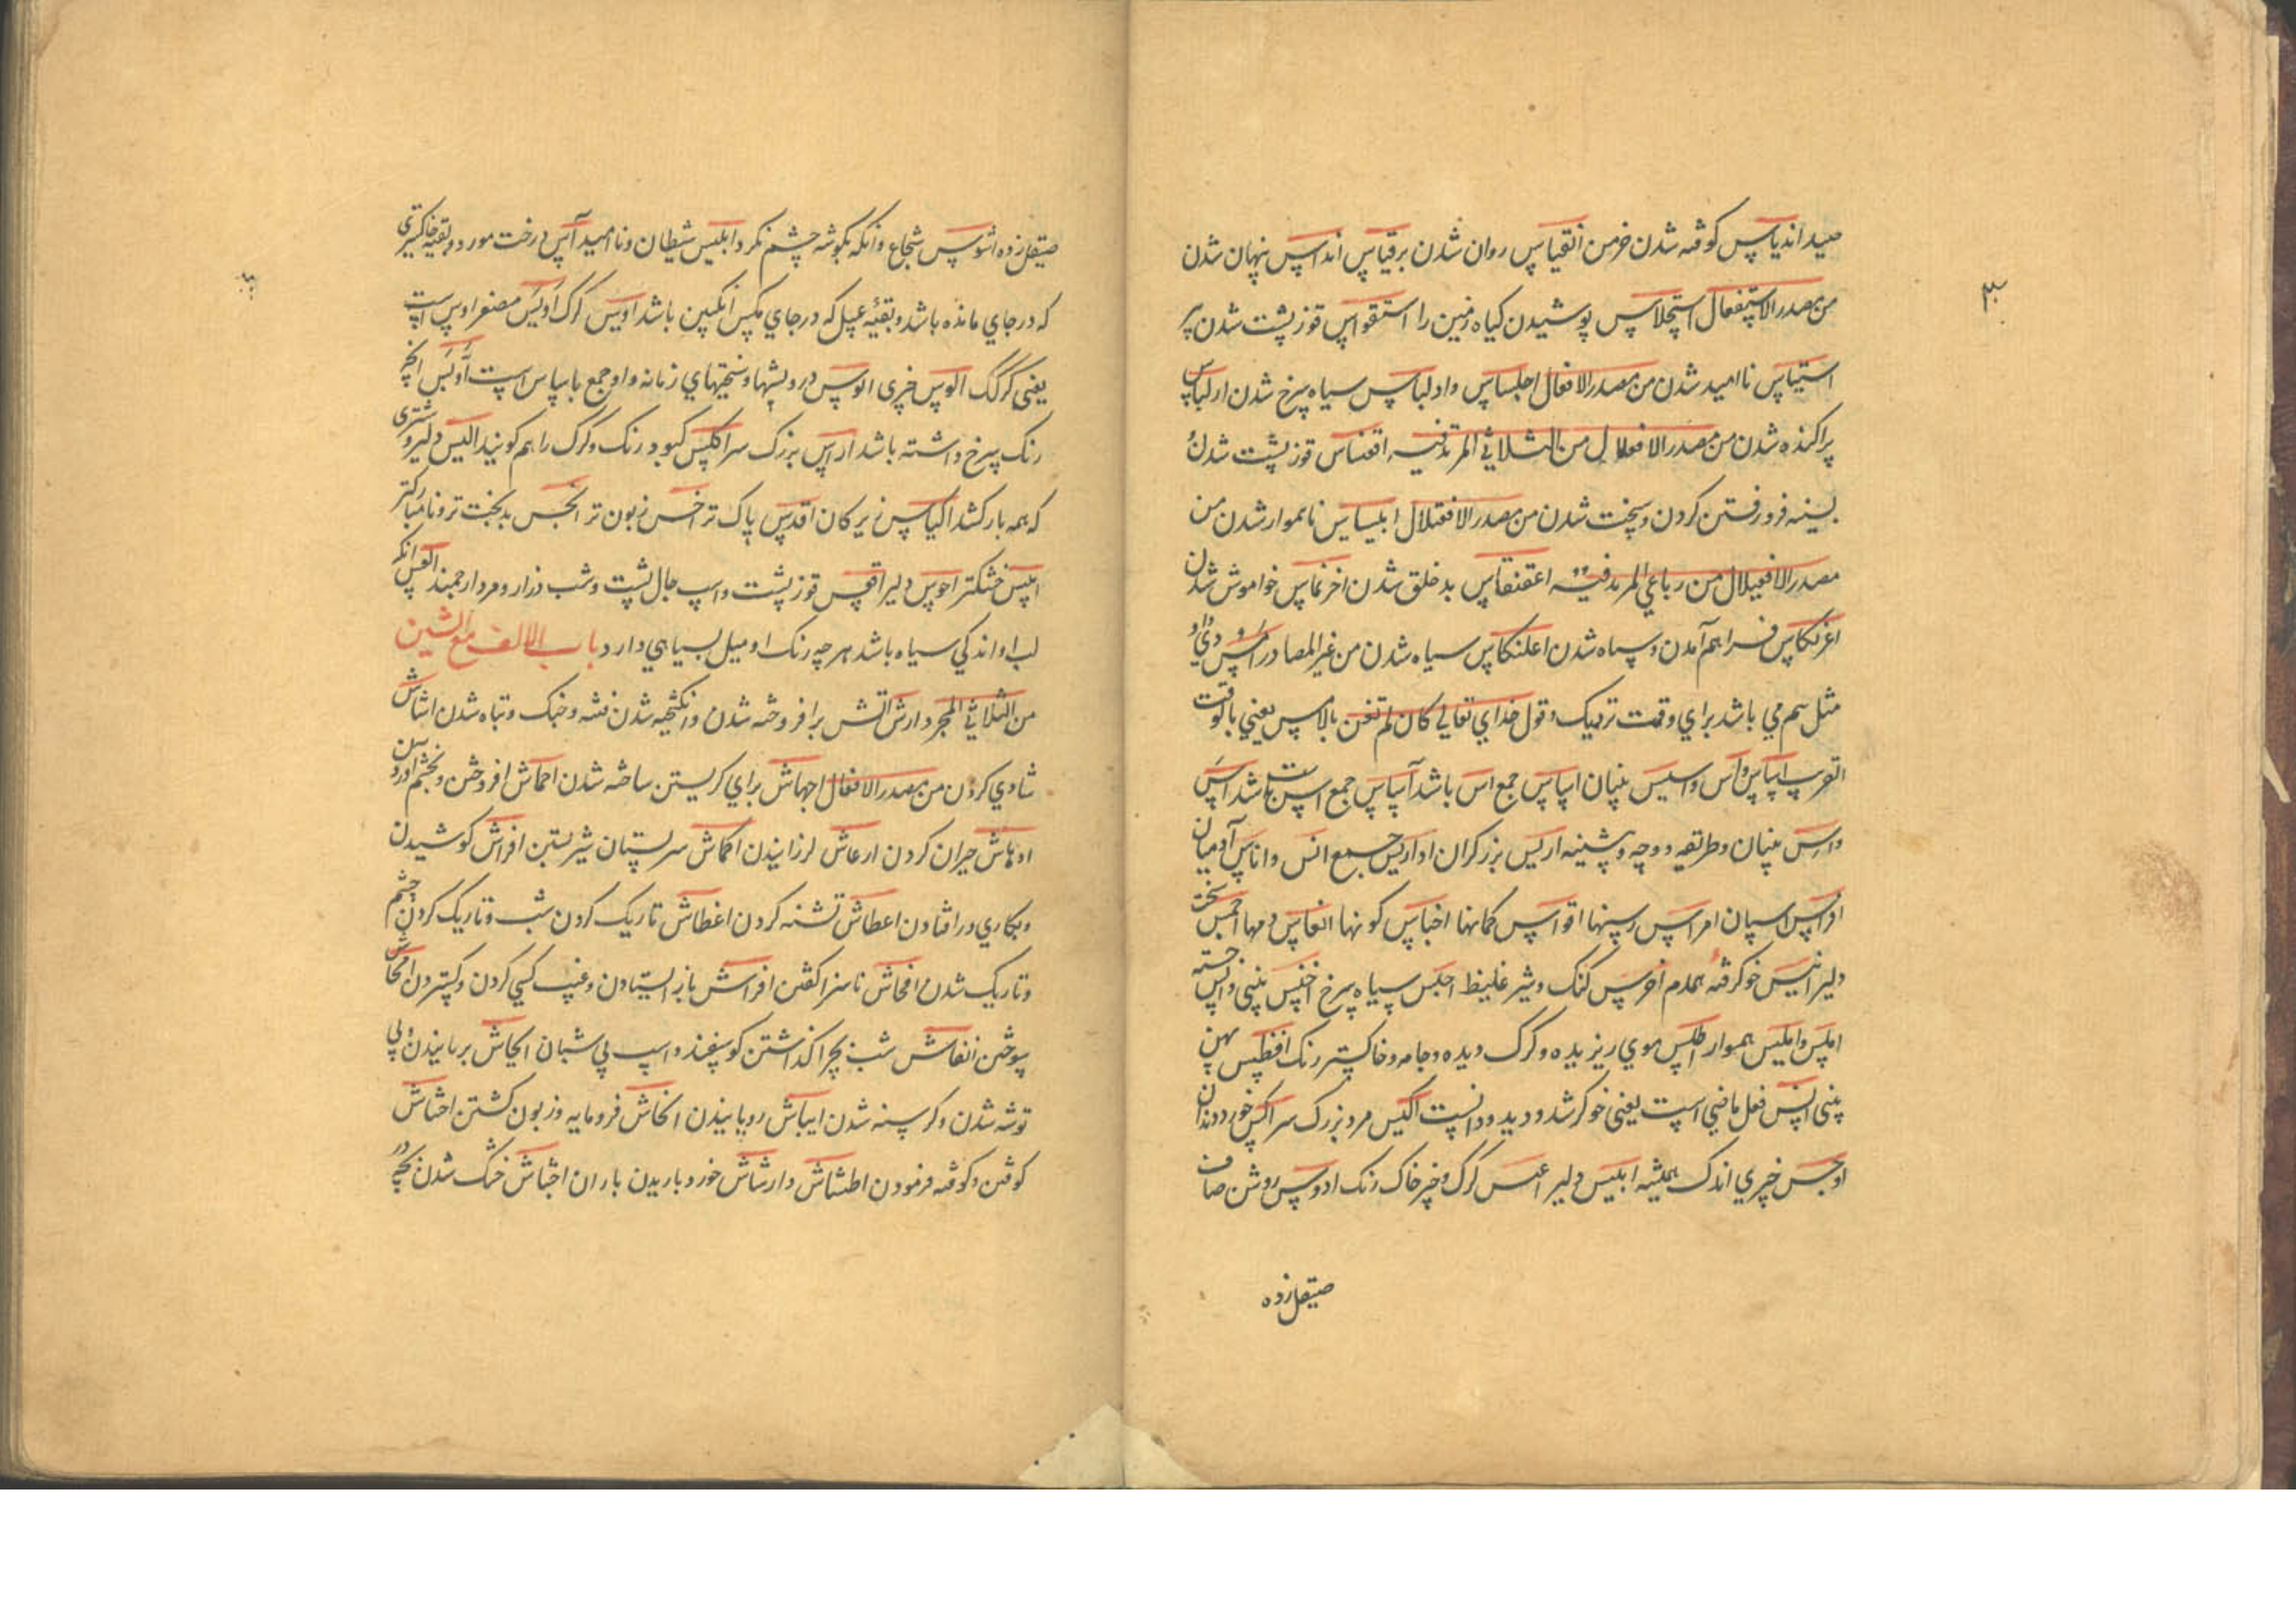 صید اندیاس کوفته شدن خرمن انقیاس روان شدن برقیاس اندساس پنهان شدن
من مصدر الاستفعال استحلاس پوشیدن کیاه زمین را استقواس قوز پشت شدن پیر
استیاس ناامید شدن من مصدر الافعال اجلساس وادلساس سیاه سرخ شدن ارلساس
پراکنده شدن من مصدر الافعلال من الثلاثی المزیدفیه اقعنساس قوز پشت شدن و
بسینه فرو رفتن کردن و سخت شدن من مصدر الافعیلال ابلیساس ناهموار شدن من
مصدر الافعیلال من رباعی المزیدفیه اعقنقاس بدخلق شدن اخرنماس خواموش شدن
اعرنکاس فراهم آمدن و سیاه شدن اعلنکاس سیاه شدن من غیر المصادر امس دی و او
مثل اسم می باشد برای وقت نزدیک و قول خدای تعالی کان لم تغن بالامس یعنی بالوقت
القریب اساس و اس و اسیس بنیان اساس جمع اس باشد آساس جمع اسس است باشد اسس
و اس بنیان و طریقه و وجه و پشینه اریس بزرکران اداریس جمع انس و اناس آدمیان
افراس اسپان امراس رسنها اقواس کمانها اخباس کونها انفاس دمها احمس سخت
دلیر انیس خو کرفته همدم اخرس کنک و شیر غلیظ اجلس سیاه سرخ اخنس بینی واپس جسته
املس و املیس هموار اطلس موی ریزیده و کرک دیده و جامه و خاکستر رنک افطس پهن
بینی انس فعل ماضی است یعنی خوکر شد و دید و دانست اکبس مرد بزرک سر اکس خورد دندان
اوجس چیزی اندک همیشه ابلیس دلیر اغبس کرک و خر خاک رنک ادوس روشن صاف
صیقل زده
صیقل زده اشوس شجاع و آنکه بکوشه چشم نکرد ابلیس شیطان و ناامید آس درخت مورد و بقیه خاکستری
که در جای مانده باشد و بقیه عسل که در جای مکس انکبین باشد اوس کرک اویس مصغر اوس است
یعنی کرکک الوس چیزی ابوس درویشها و سختیهای زمانه و او جمع باساس است آوبس آنچه
رنک سرخ داشته باشد اراس بزرک سر اکلس کبود رنک و کرک را هم کویند الیس دلیر و شتری
که همه بار کشد اکیاس زیرکان اقدس پاک تر اخس زبون تر انحس بدبخت تر و نامبارکتر
ایبس خشکتر احوس دلیر اقعس قوز پشت و اسپ جال پشت و شب دراز و مرد ارجمند العس آنکه
لب او اندکی سیاه باشد هر چه رنک او میل بسیاهی دارد باب الالف مع الشین
من الثلاثی المجرد ارش آتش برافروخته شدن و انکیخته شدن فتنه و جنک و تباه شدن اشاش
شادی کردن من مصدر الافعال اجهاش برای کریستن ساخته شدن احماش افروختن و بخشم آوردن
ادهاش حیران کردن ارعاش لرزانیدن اکماش سر پستان شیر بستن افراش کوشیدن
و بکاری درافتادن اعطاش تشنه کردن اغطاش تاریک کردن شب و تاریک کردن چشم
و تاریک شدن افحاش ناسزا کفتن افراش باز ایستادن و غیبت کسی کردن و کستردن امحاش
سوختن انفاش شب بچرا کذاشتن کوسفند و اسپ بی شبان ایحاش برمانیدن و بی
توشه شدن و کرسنه شدن ایباش رویانیدن انخاش فرومایه و زبون کشتن احشاش
کوفتن و کوفته فرمودن اطشاش و ارشاش خورد باریدن باران احشاش خشک شدن بچه در